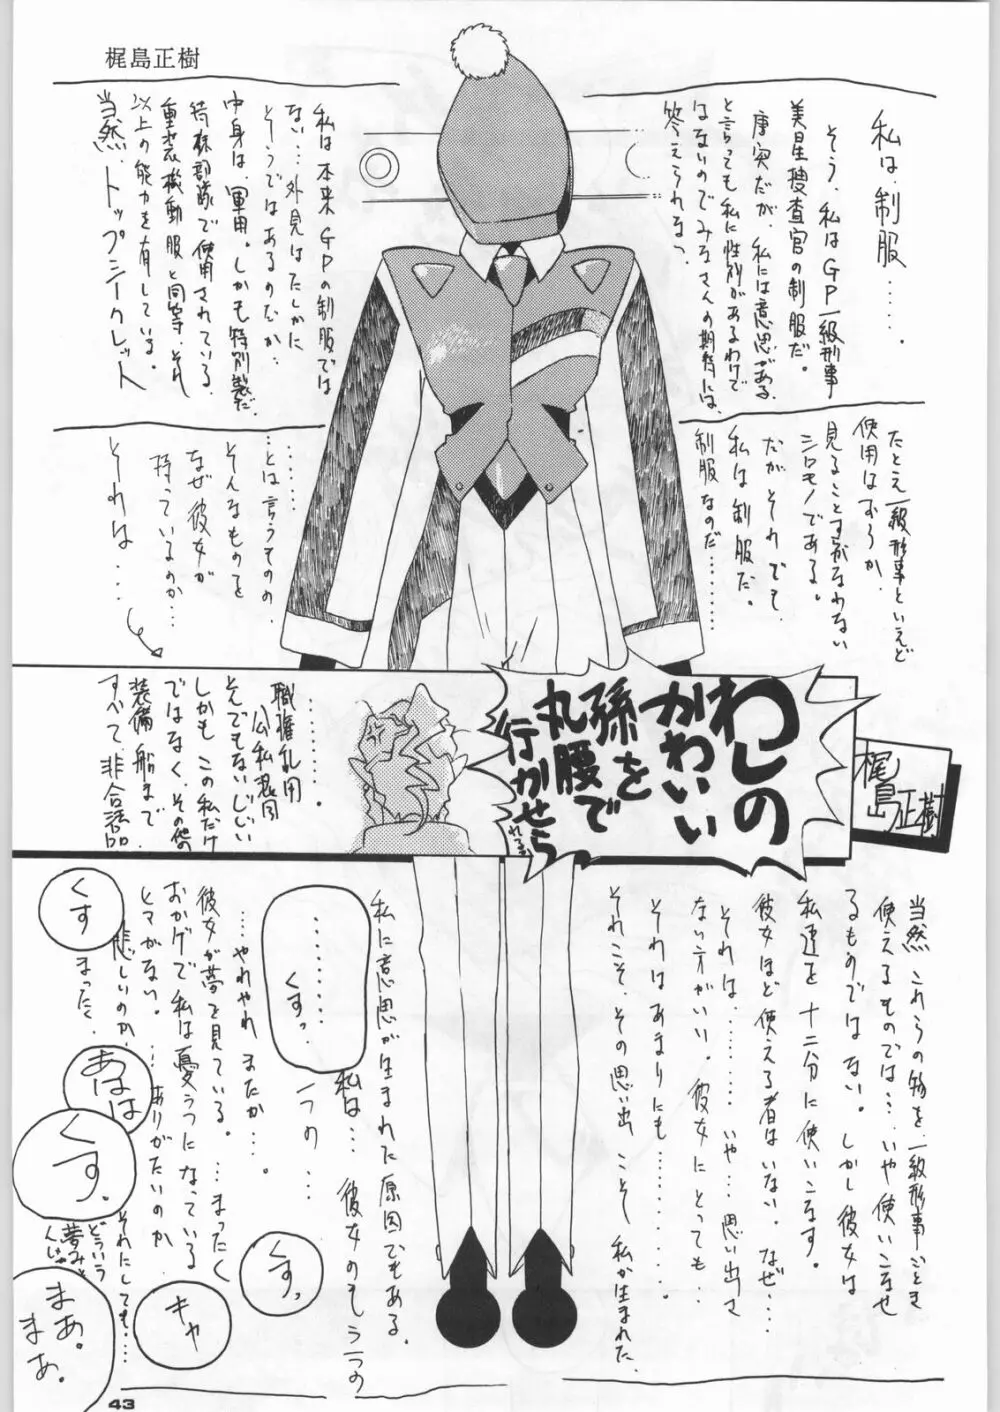 梶島正樹
私は、制服……．
そう、私はGP一級刑事
美星捜査官の制服だ。
唐突だが、私には意思がある
と言っても私に性別があるわけで
はないのでみなさんの期待には、
答えられないっ
私は本来GPの制服では
ない…外見はたしかに
そうではあるのだが…
中身は、軍用。しかも特別製だ。
特殊部隊で使用されている
重装機動服と同等、それ
以上の能力を有している。
当然、トップシークレット
たとえ一級刑事といえど
使用はおろか、
見ることすらかなわない
シロモノである。
だが、それでも
私は制服だ。
制服なのだ……
……とは言うものの
そんなものを
なぜ彼女が
持っているのか…
それは……
わしの
かわいい
孫を
丸腰で
行かせら
れるか
梶島正樹
職権乱用
公私混同
そんでもないしじい
しかもこの私だけ
ではなく、その他の
装備、船まで
すべて、非合法品
当然これらの物を、一級刑事ごとき
使えるものでは…いや使いこなせ
るものではない。しかし彼女は
私達を十二分に使いこなす。
彼女ほど使える者はいない。なぜ……
それは……いや…思い出さ
ない方がいい。彼女にとっても…
それはあまりにも……．
それこそ、その思い出こそ私が生まれた、
私に意思が生まれた原因でもある。
私は…彼女のもう一つの
一つの…
……くすっ
…やれやれまたか…．
彼女が夢を見ている。…まったく
おかげで私は憂うつになっている
ヒマがない。…ありがたいのか
悲しいのか…それにしても……
まったく、
どういう
夢みて
くすっ
くす
あはは
くす。
キャ
まあ。
まあ。
43